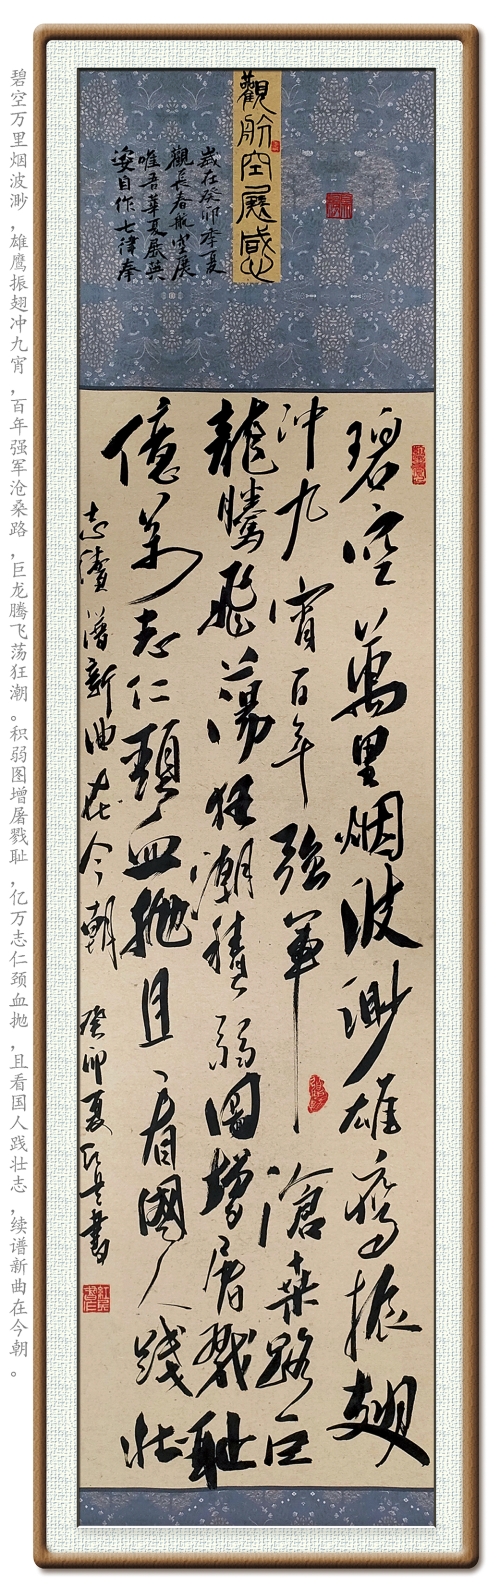 觀航空展感
歲在癸卯季夏
觀長春航空展
唯吾華夏展英
姿自作七律奉
碧空萬里烟波渺雄鷹振翅
冲九宵百年強軍滄桑路巨
龍騰飛蕩狂潮積弱圖增屠戮耻
億萬志仁頸血抛且看國人踐壮
志續譜新曲在今朝 癸卯夏書
碧空万里烟波渺,雄鹰振翅冲九宵,百年强军沧桑路,巨龙腾飞荡狂潮。积弱图增屠戮耻,亿万志仁颈血抛,且看国人践壮志,续谱新曲在今朝。